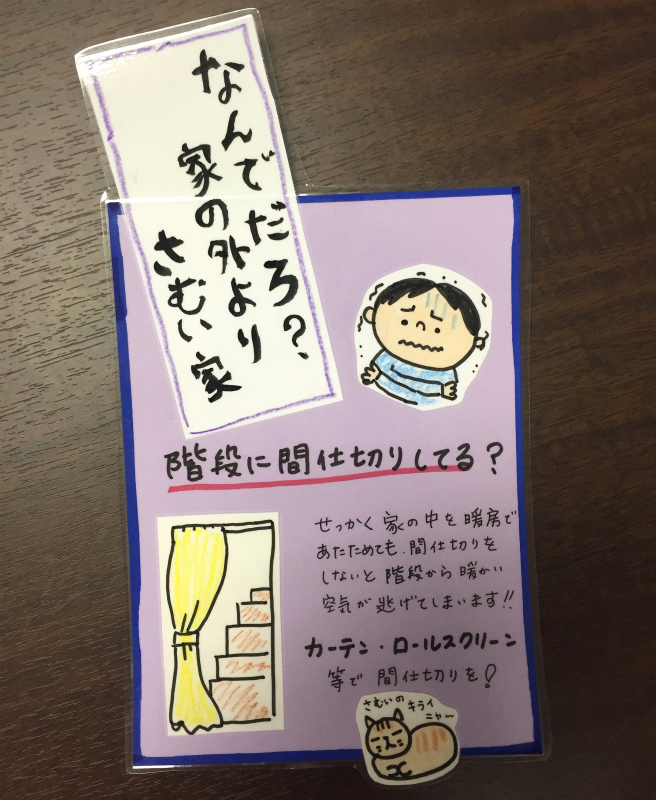 なんでだろ?
家の外より
さむい家
階段に間仕切りしてる?
せっかく家の中を暖房で
あたためても、間仕切りを
しないと階段から暖かい
空気が逃げてしまいます!!
カーテン・ロールスクリーン
等で間仕切りを!
さむいの
キライ
ニャ〜